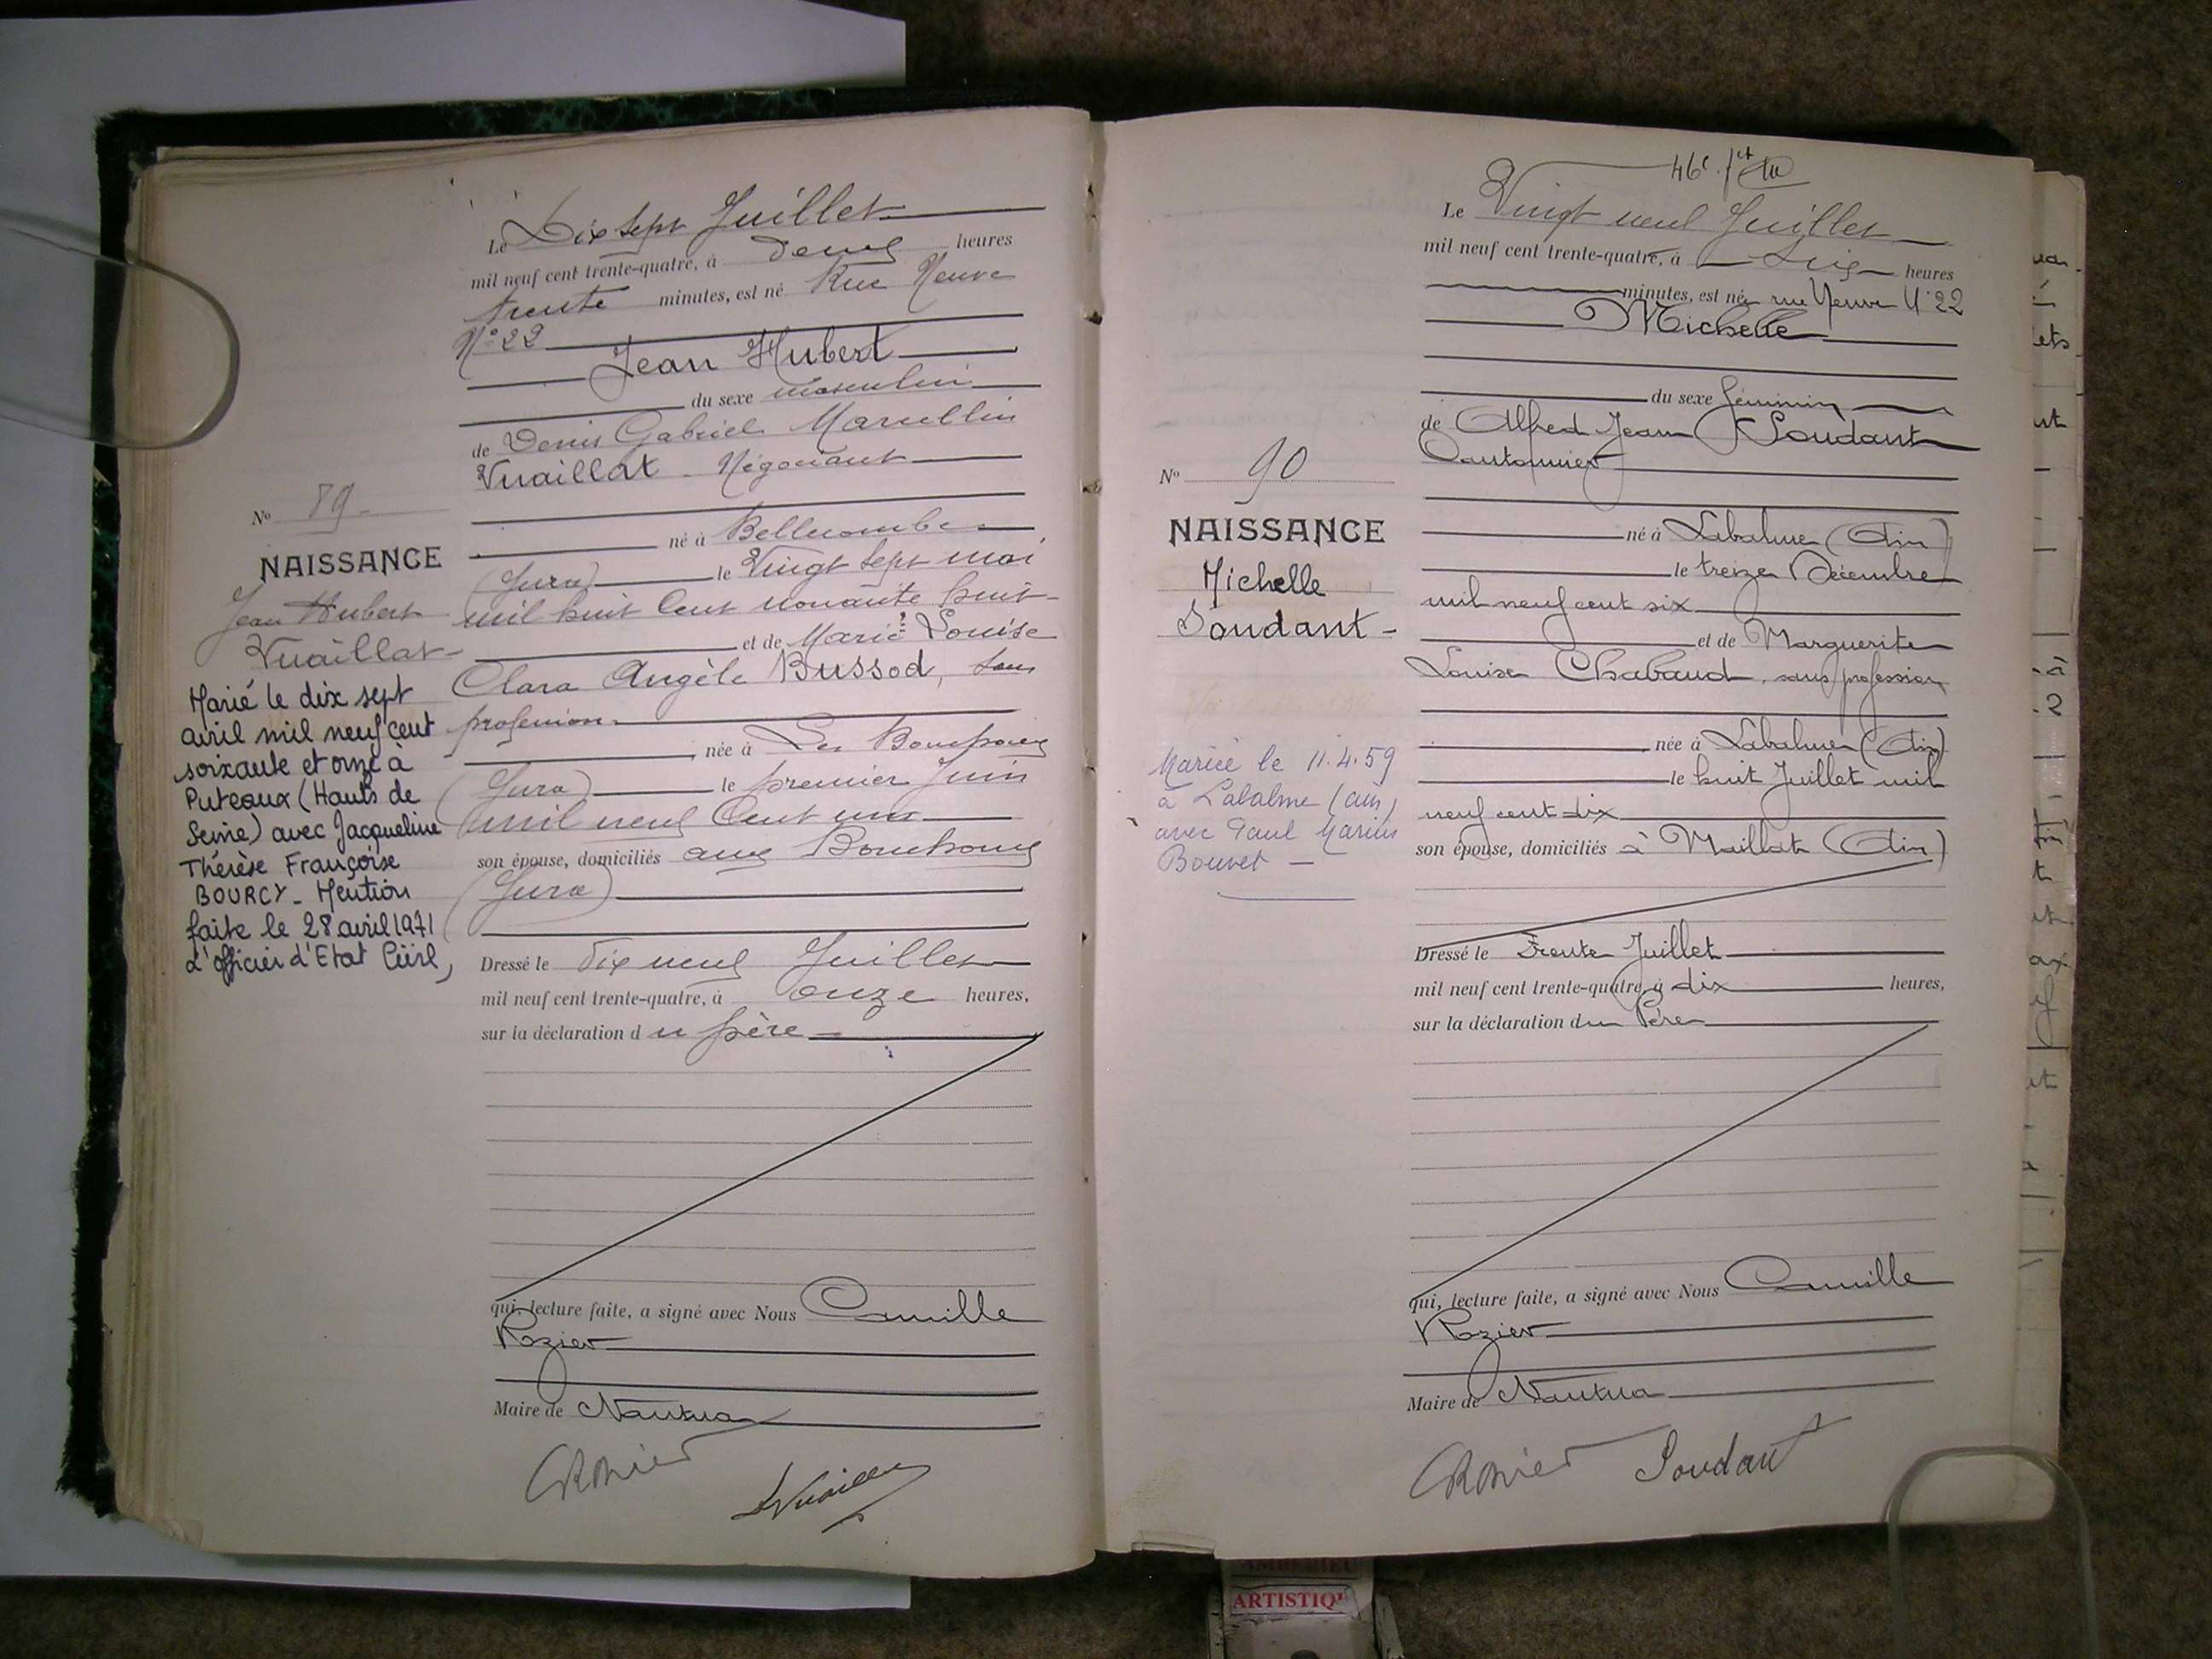 Le Dix sept Juillet
mil neuf cent trente-quatre, à deux heures
trente minutes, est né Rue Neuve
N° 22
Jean Hubert
du sexe masculin
de Denis Gabriel Marcellin
Vuaillat Négociant
né à Bellecombe
(Jura) le Vingt sept mai
mil huit Cent nonante huit
et de Marie Louise
Clara Angèle Bussod, sans
profession
née à Les Bouchoux
(Jura) le premier Juin
mil neuf Cent un
son épouse, domiciliés aux Bouchoux
(Jura)
Dressé le Dix neuf Juillet
mil neuf cent trente-quatre, à onze heures,
sur la déclaration du père
qui, lecture faite, a signé avec Nous Camille
Rozier
Maire de Nantua
CRozier
Vuaillat
N° 89
NAISSANCE
Jean Hubert
Vuaillat
Marié le dix sept
avril mil neuf cent
soixante et onze à
Puteaux (Hauts de
Seine) avec Jacqueline
Thérèse Françoise
BOURCY - Mention
faite le 28 avril 1971
l'officier d'Etat Civil,
46e
Le Vingt neuf Juillet
mil neuf cent trente-quatre, à six heures
minutes, est née rue Neuve N° 22
Michelle
du sexe féminin
de Alfred Jean Soudant
Cantonnier
né à Labalme (Ain)
le treize Décembre
mil neuf cent six
et de Marguerite
Louise Chabaud, sans profession
née à Labalme (Ain)
le huit Juillet mil
neuf cent dix
son épouse, domiciliés à Maillat (Ain)
Dressé le Trente Juillet
mil neuf cent trente-quatre, à dix heures,
sur la déclaration du Père
qui, lecture faite, a signé avec Nous Camille
Rozier
Maire de Nantua
CRozier Soudant
N° 90
NAISSANCE
Michelle
Soudant
Mariée le 11.4.59
à Labalme (ain)
avec Paul Marius
Bouvet
ARTISTIQ